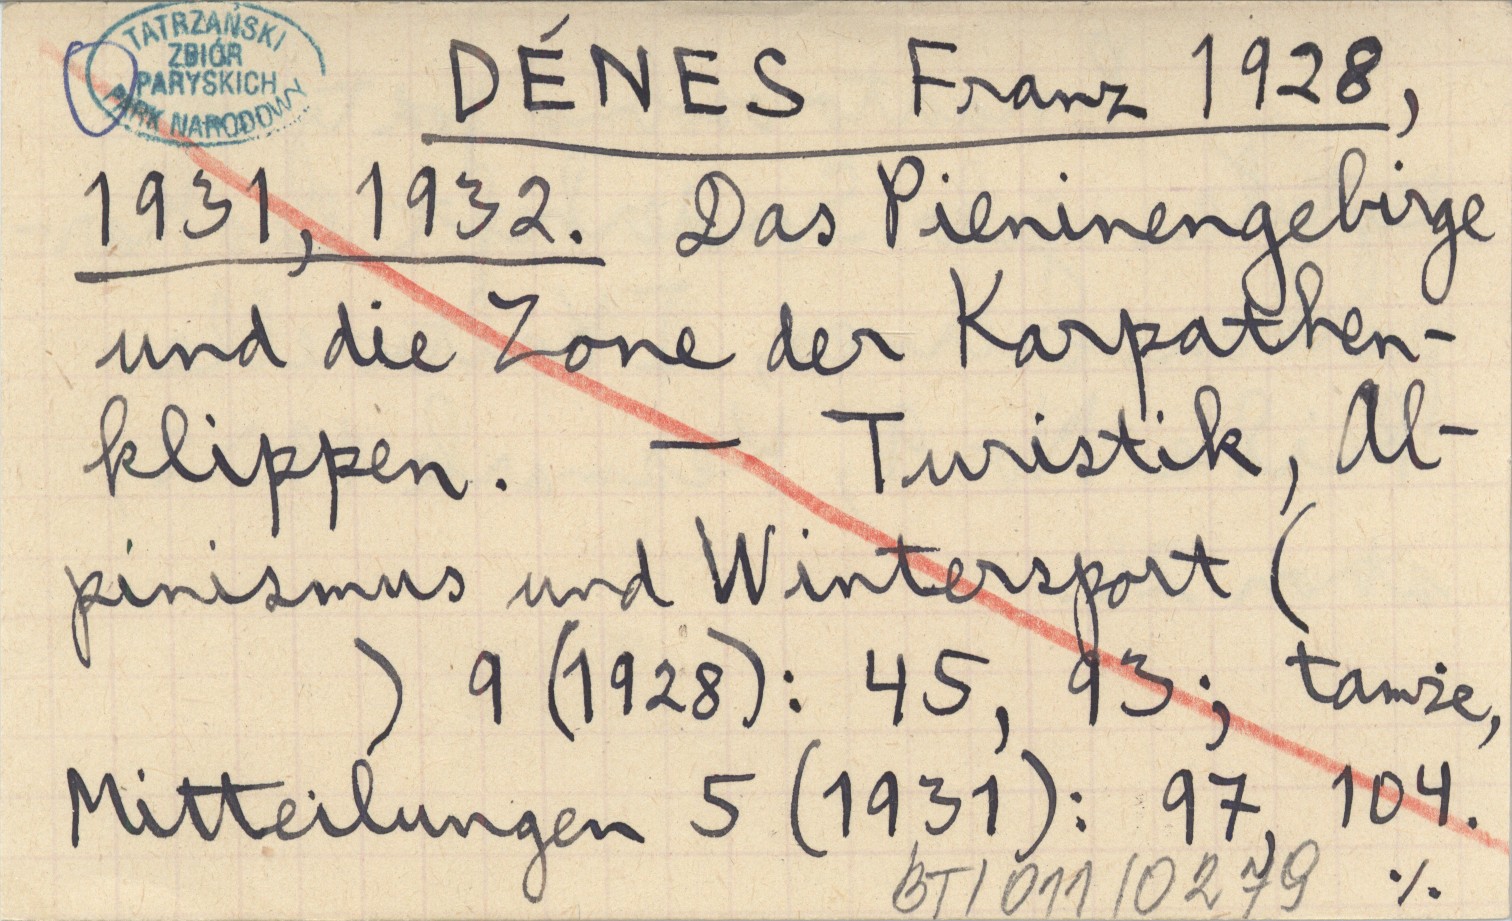 TATRZAŃSKI
ZBIÓR
PARYSKICH
PARK NARODOWY
DÉNES Franz 1928,
1931, 1932. Das Pieninengebirge
und die Zone der Karpathen-
klippen. — Turistik, Al-
pinismus und Wintersport (
) 9 (1928): 45, 93; tamże,
Mitteilungen 5 (1931): 97, 104.
BT/011/0279 ./.